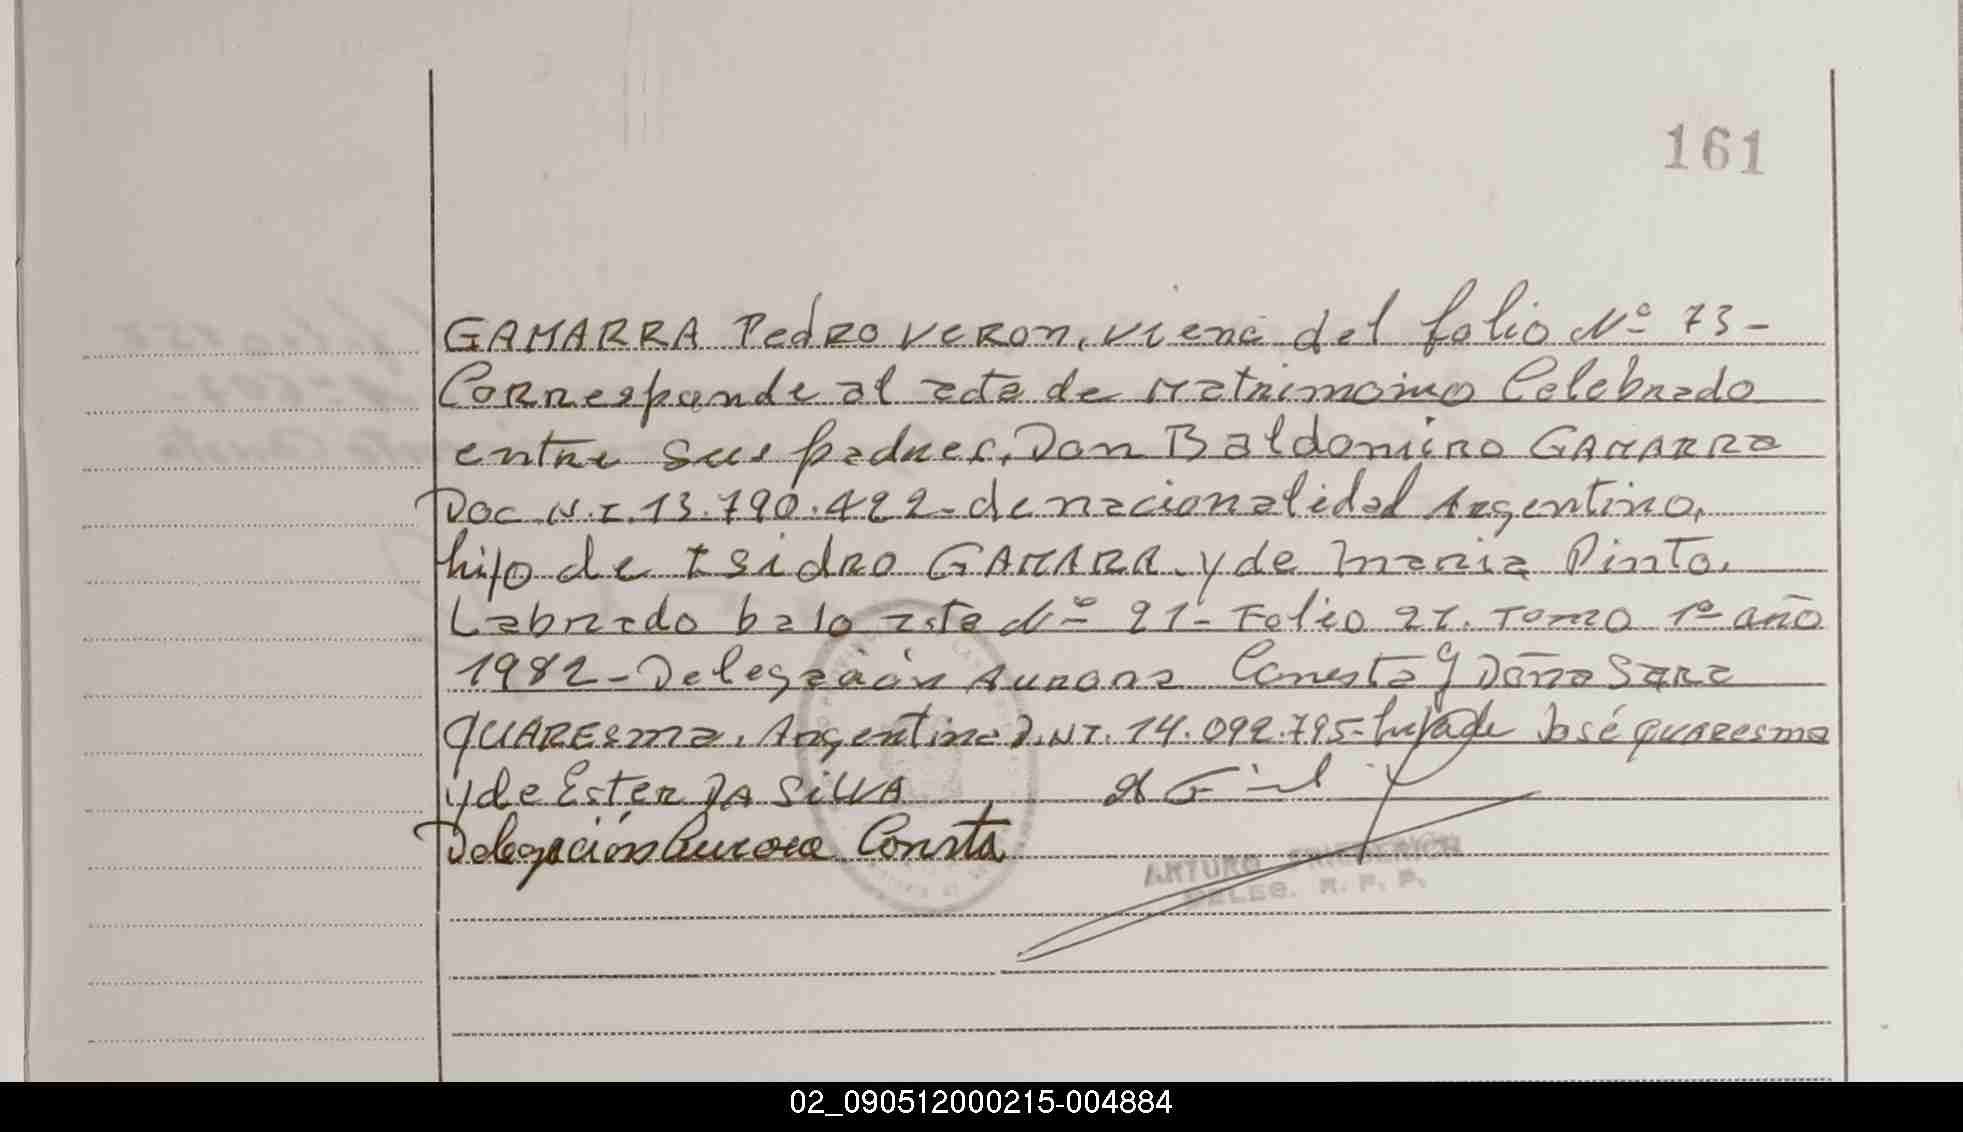 161
GAMARRA Pedro VERON, viene del folio Nº 73-
Corresponde al acta de Matrimonio Celebrado
entre sus padres, Don Baldomiro GAMARRA
Doc N.I. 13.790.422- de nacionalidad Argentino,
hijo de Isidro GAMARRA y de Maria Pinto.
Labrado bajo acta Nº 21- Folio 21. Tomo 1º año
1982- Delegación Aurora Consta y Doña Sara
QUARESMA, Argentina D.NI. 14.092.795- hija de José quaresma
y de Ester DA SILVA
Delegación Aurora Consta
ARTURO FRIEDERICH
DELEG. R. P. P.
02_090512000215-004884